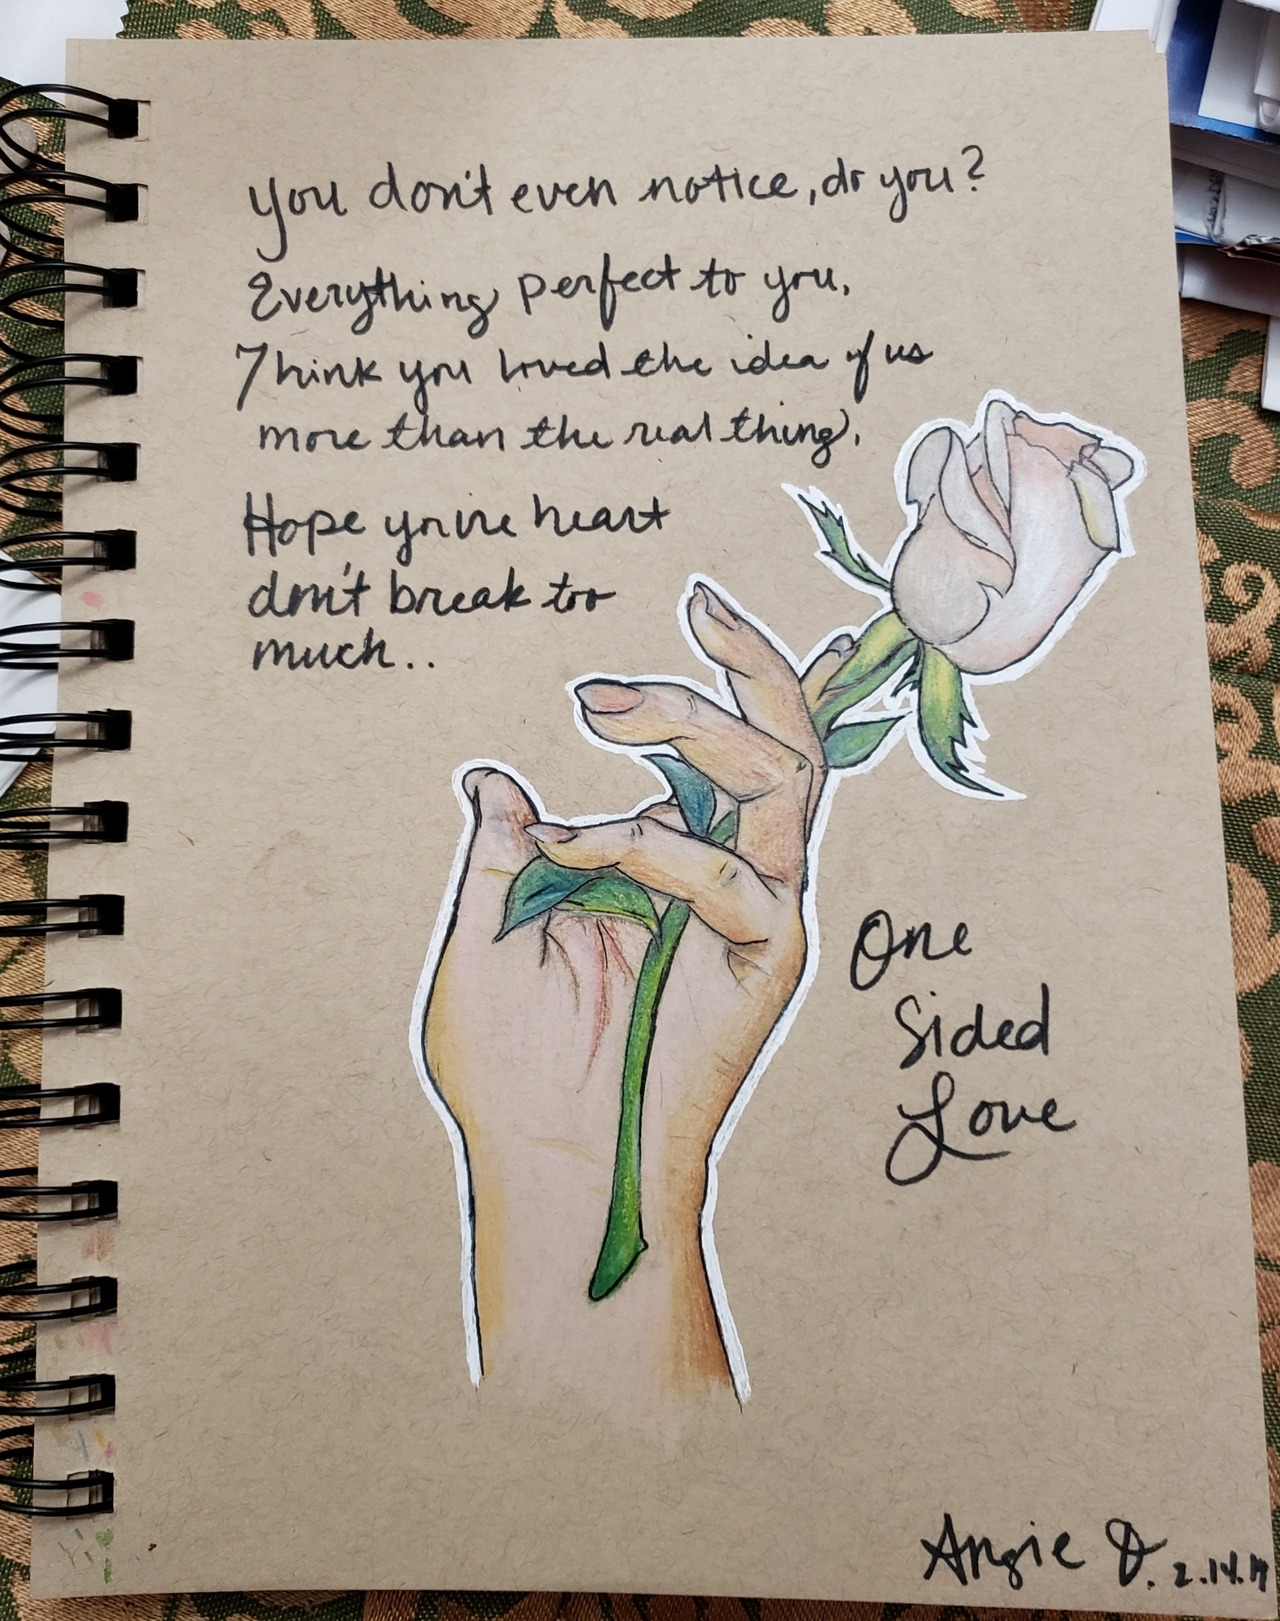 You don't even notice, do you?
Everything perfect to you,
Think you loved the idea of us
more than the real thing.
Hope you're heart
don't break too
much..
One
Sided
Love
Angie O. 2.14.19